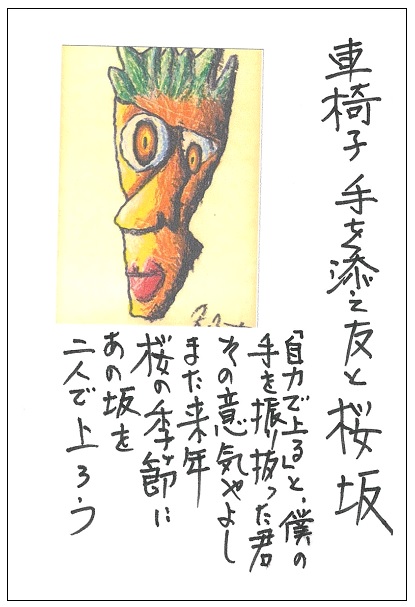 車椅子 手を添えて友と桜坂
「自力で上る」と、僕の
手を振り抜った君
その意気やよし
また来年
桜の季節に
あの坂を
二人で上ろう